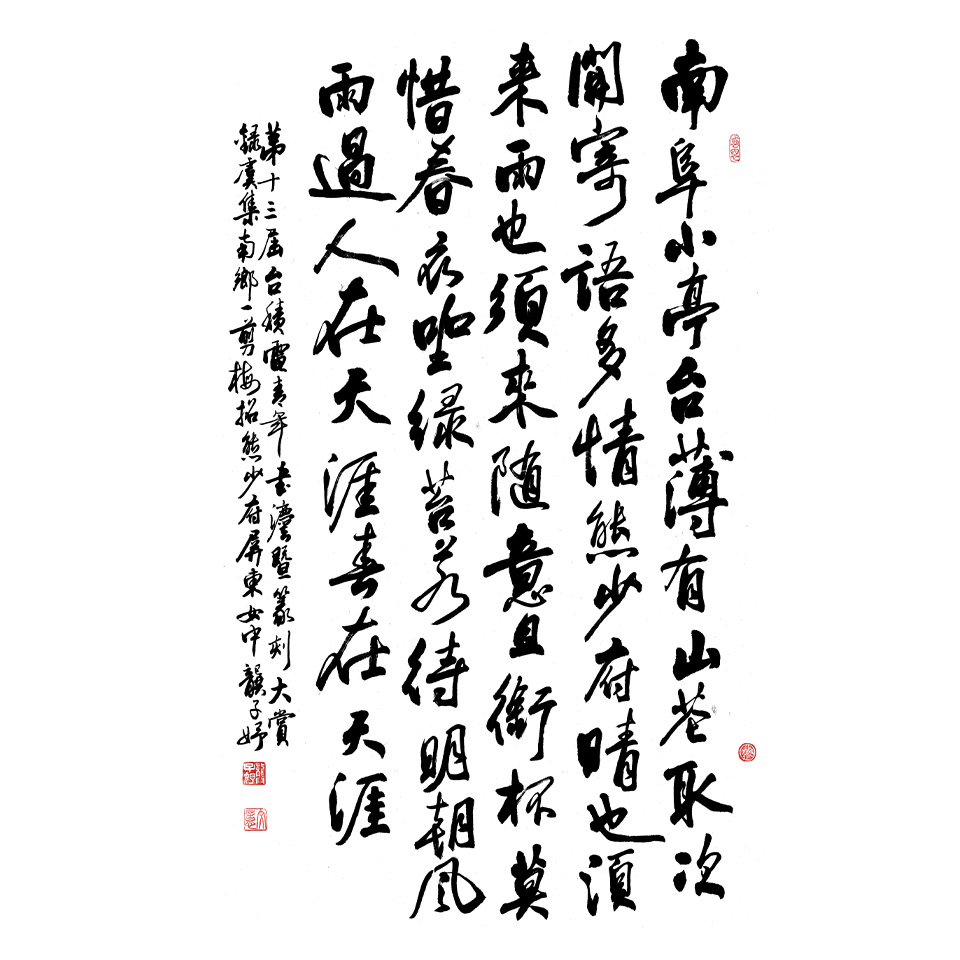 南阜小亭台薄有山花取次
開寄語多情熊少府晴也須
来雨也須來随意且銜杯莫
惜春衣坐緑苔若待明朝風
雨過人在天涯春在天涯
第十三屆台積電青年書灋暨篆刻大賞
録虞集南鄉一剪梅招熊少府屏東女中龔子妤